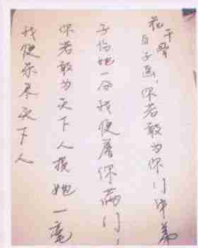 花千骨
白子画，你若敢为你门中弟
子伤她一分，我便屠你满门，
你若敢为天下人损她一毫
我便杀尽天下人